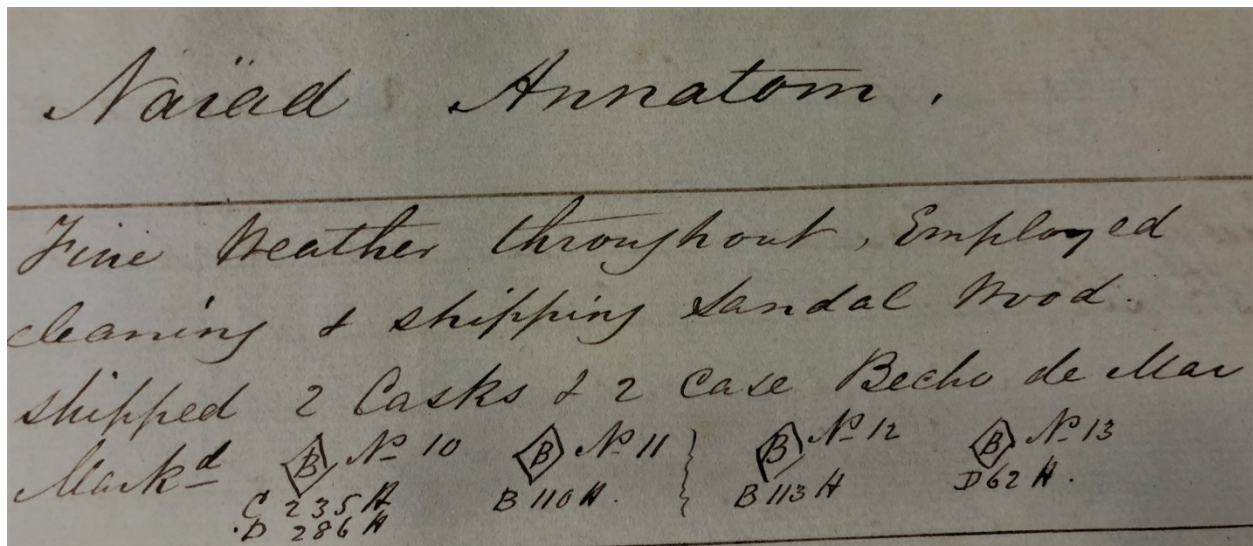 Naïad Annatom.
Fine Weather throughout, Employed
cleaning & shipping Sandal Wood.
shipped 2 Casks & 2 Case Becho de Mar
Markd B No 10 B No 11 B No 12 B No 13
C 235 B 110 B 113 D 62
D 286